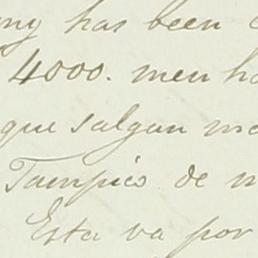 ny has been
4000. men ha
que salgan
Tampico de
Esta va por